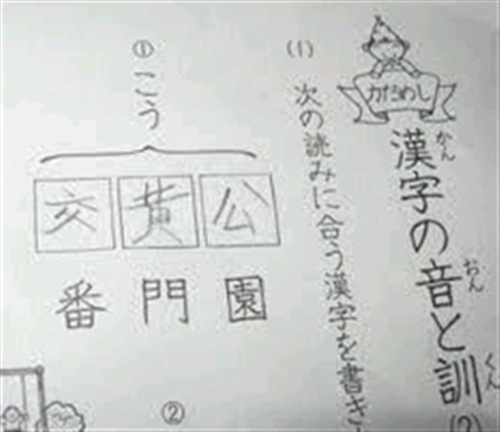 力だめし
漢字の音と訓
かん
おん
くん
(2)
(1)
次の読みに合う漢字を書き
① こう
公園
黄門
交番
②